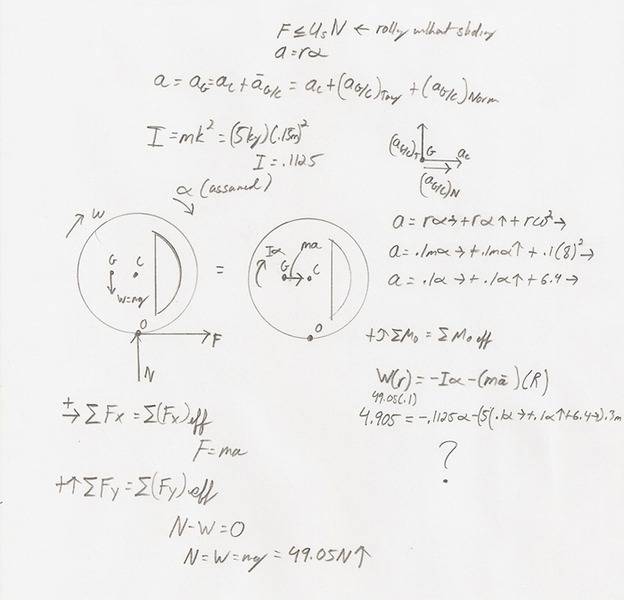 F ≤ μsN ← rolling without sliding
a = rα
a = aG = aC + āG/C = aC + (aG/C)Tang + (aG/C)Norm
I = mk² = (5kg)(.15m)²
I = .1125
α (assumed)
(aG/C)T
G
aC
(aG/C)N
ω
G
C
W=mg
O
F
N
=
Iα
ma
G
C
O
a = rα→ + rα↑ + rω²→
a = .1mα→ + .1mα↑ + .1(8)²→
a = .1α→ + .1α↑ + 6.4→
+↑ΣMo = ΣMo eff
W(r) = -Iα - (mā)(R)
49.05(.1)
4.905 = -.1125α - (5(.1α→ + .1α↑ + 6.4→).3m
?
+→ ΣFx = Σ(Fx)eff
F = ma
+↑ΣFy = Σ(Fy)eff
N-W=0
N=W=mg = 49.05N↑